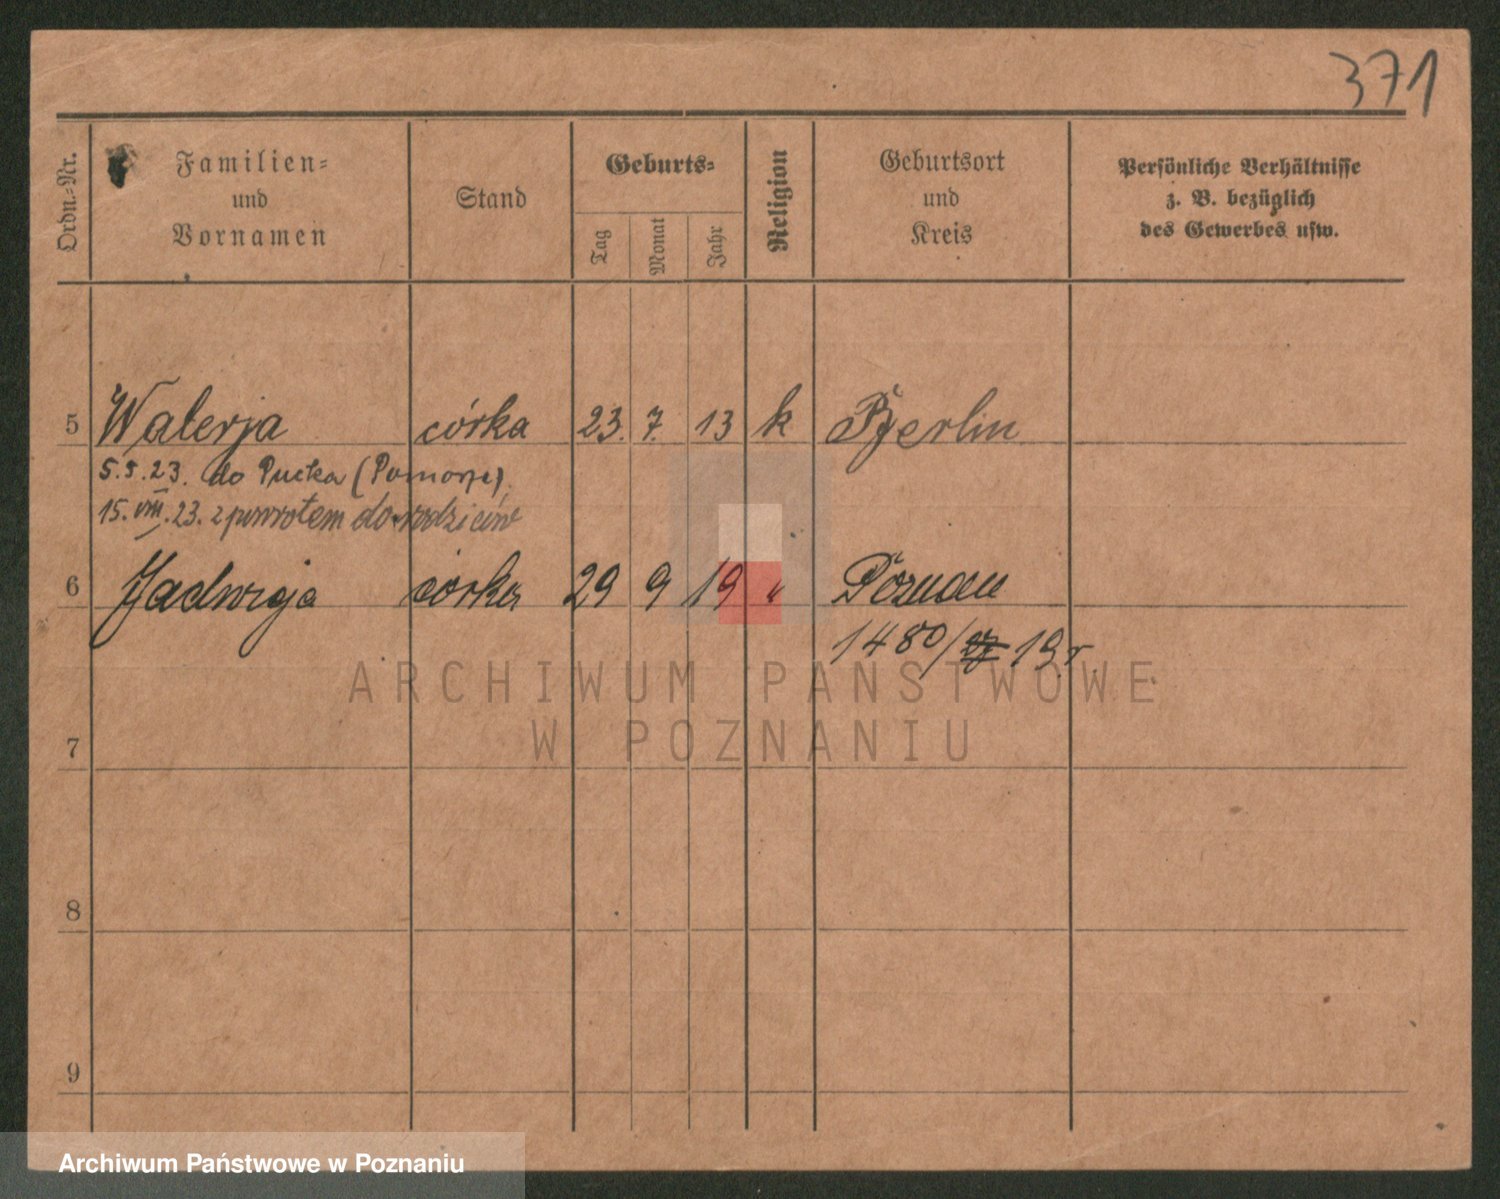 371
Ordn.-Nr.
Familien-
und
Vornamen
Stand
Geburts-
Tag
Monat
Jahr
Religion
Geburtsort
und
Kreis
Persönliche Verhältnisse
z. B. bezüglich
des Gewerbes usw.
5 Walerja córka 23. 7. 13 k Berlin
5.5.23. do Pucka (Pomorze)
15. VIII. 23. z powrotem do rodziców
6 Jadwiga córka 29 9 19 " Poznań
1480/ 19 r.
ARCHIWUM PAŃSTWOWE
W POZNANIU
7
8
9
Archiwum Państwowe w Poznaniu